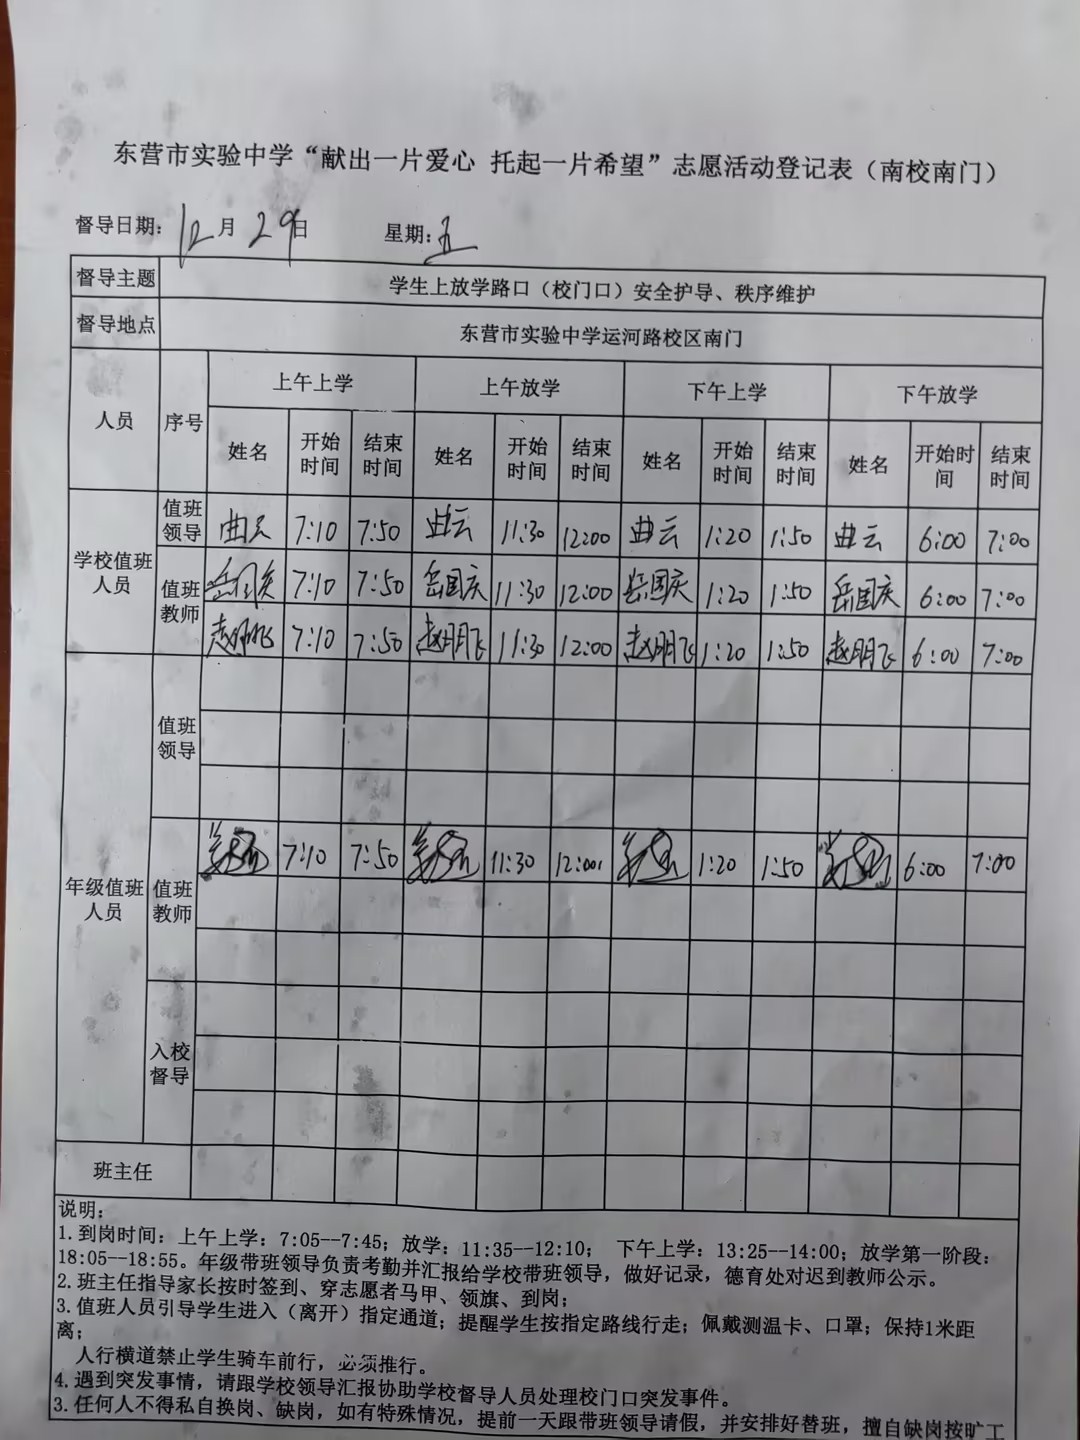 东营市实验中学“献出一片爱心 托起一片希望”志愿活动登记表（南校南门）
督导日期：12月29日 星期：五
督导主题 学生上放学路口（校门口）安全护导、秩序维护
督导地点 东营市实验中学运河路校区南门
人员 序号 上午上学 上午放学 下午上学 下午放学
姓名 开始时间 结束时间 姓名 开始时间 结束时间 姓名 开始时间 结束时间 姓名 开始时间 结束时间
学校值班人员 值班领导 曲云 7:10 7:50 曲云 11:30 12:00 曲云 1:20 1:50 曲云 6:00 7:00
值班教师 岳国庆 7:10 7:50 岳国庆 11:30 12:00 岳国庆 1:20 1:50 岳国庆 6:00 7:00
赵明飞 7:10 7:50 赵明飞 11:30 12:00 赵明飞 1:20 1:50 赵明飞 6:00 7:00
年级值班人员 值班领导
值班教师 7:10 7:50 11:30 12:00 1:20 1:50 6:00 7:00
入校督导
班主任
说明：
1.到岗时间：上午上学：7:05--7:45；放学：11:35--12:10； 下午上学：13:25--14:00；放学第一阶段：
18:05--18:55。年级带班领导负责考勤并汇报给学校带班领导，做好记录，德育处对迟到教师公示。
2.班主任指导家长按时签到、穿志愿者马甲、领旗、到岗；
3.值班人员引导学生进入（离开）指定通道；提醒学生按指定路线行走；佩戴测温卡、口罩；保持1米距
离；
人行横道禁止学生骑车前行，必须推行。
4.遇到突发事情，请跟学校领导汇报协助学校督导人员处理校门口突发事件。
3.任何人不得私自换岗、缺岗，如有特殊情况，提前一天跟带班领导请假，并安排好替班，擅自缺岗按旷工